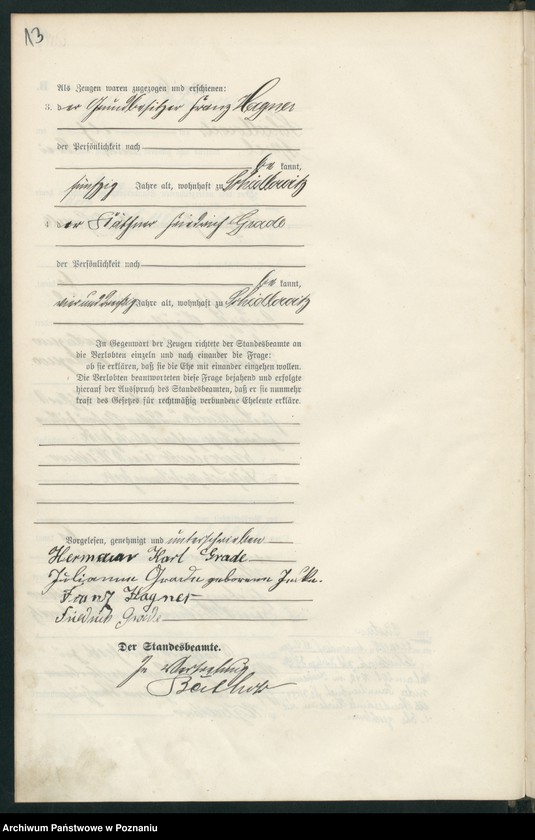 13
Als Zeugen waren zugezogen und erschienen:
3. der Grundbesitzer Franz Hagner
der Persönlichkeit nach
be kannt,
fünfzig Jahre alt, wohnhaft zu Schidlowitz
4. der Käthner Friedrich Grade
der Persönlichkeit nach
be kannt,
vierunddreißig Jahre alt, wohnhaft zu Schidlowitz
In Gegenwart der Zeugen richtete der Standesbeamte an
die Verlobten einzeln und nach einander die Frage:
ob sie erklären, daß sie die Ehe mit einander eingehen wollen.
Die Verlobten beantworteten diese Frage bejahend und erfolgte
hierauf der Ausspruch des Standesbeamten, daß er sie nunmehr
kraft des Gesetzes für rechtmäßig verbundene Eheleute erkläre.
Vorgelesen, genehmigt und unterschrieben
Hermann Karl Grade
Julianna Grade geborene
Franz Hagner
Friedrich Grade
Der Standesbeamte.
In Vertretung
Archiwum Państwowe w Poznaniu